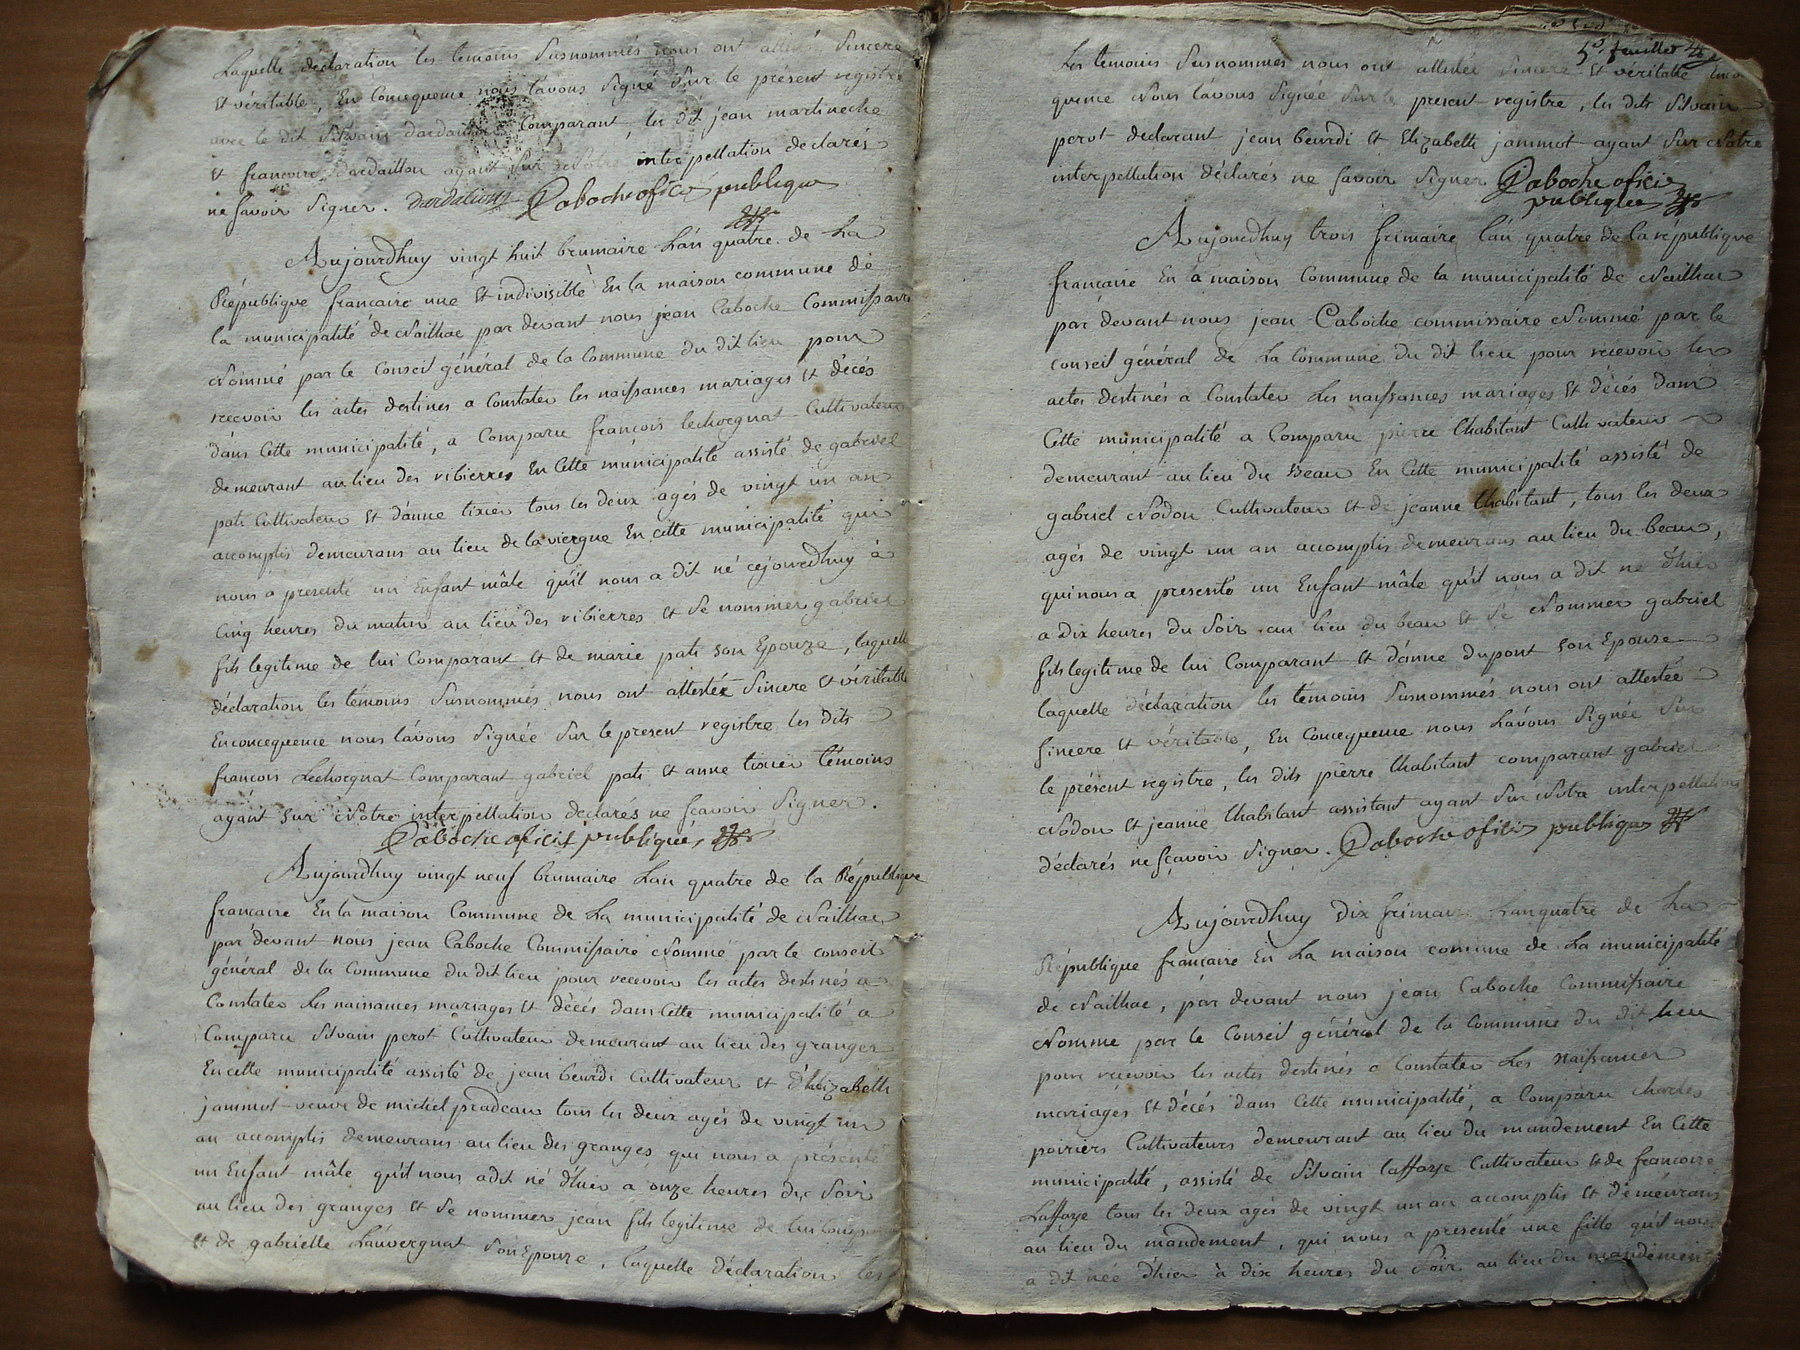 Laquelle déclaration les temoins Susnommés nous ont attesté Sincere
et véritable, En Concequence nous lávons Signé Sur le présent registre
avec le dit Silvain dardaillon Comparant, les dit jean martineche
et francoire dardaillon ayant Sur Notre interpellation declarés
ne Savoir Signer. dardalion Caboche oficier publique
Aujourdhuy vingt huit brumaire Lán quatre de La
République francaire une et indivisible En la maison commune de
la municipalité de Noilhac par devant nous jean Caboche Commissaire
Nommé par le Conseil général de la Commune du dit lieu pour
recevoir les actes destines a Constater les naissances mariages et décés
dans Cette municipalité, a Comparu françois lechoegnat Cultivateur
demeurant au lieu des ribierres En Cette municipalité assisté de gabriel
pati Cultivateur et dánne tixier tous les deux agés de vingt un an
accomplis demeurans au lieu de la viergne En cette municipalité qui
nous a presenté un Enfant mâle quil nous a dit né céjourdhuy à
Cinq heures du matin au lieu des ribierres et Se nommer gabriel
fils legitime de lui Comparant et de marie pati Son Epouze, laquelle
déclaration les témoins Susnommés nous ont attestée Sincere et véritable
Enconcequence nous lávons Signée Sur le present registre les dits
françois Lechoegnat Comparant gabriel pati et anne tixier témoins
ayant Sur Notre interpellation declarés ne sçavoir Signer.
Caboche oficier publique
Aujourdhuy vingt neuf brumaire Lan quatre de la République
francaire En la maison Commune de La municipalité de Nailhac
par devant nous jean Caboche Commissaire Nommé par le conseil
général de la Commune du dit lieu pour recevoir les actes destinés a
Constater les naisances mariages et décés dans Cette municipalité a
Comparu Silvain perot Cultivateur demeurant au lieu des granges
En cette municipalité assisté de jean beurdi Cultivateur et dhelizabeth
jammot veuve de michel pradeau tous les deux agés de vingt un
an accomplis demeurans au lieu des granges qui nous a présenté
un Enfant mâle quil nous a dit né dhier a onze heures du Soir
au lieu des granges et Se nommer jean fils legitime de lui Comparant
et de gabrielle Láuvergnat Son Epouze, laquelle déclaration les
5e feuillet
Les temoins Susnommés nous ont attestée Sincere et véritable Enco
quence Nous lávons Signée Sur le present registre, les dits Silvain
perot declarant jean beurdi et Elizabeth jammot ayant Sur Notre
interpellation déclarés ne Savoir Signer Caboche oficier
publique
Aujourdhuy trois frimaire lán quatre de la république
francaire En a maison Commune de la municipalité de Nailhac
par devant nous jean Caboche commissaire Nommé par le
conseil général de La Commune du dit lieu pour recevoir les
actes destinés a Constater Les naissances mariages et décés dans
Cette municipalité a Comparu pierre Chabitant Cultivateur
demeurant au lieu du Beau En Cette municipalité assisté de
gabriel Nodon Cultivateur et de jeanne Chabitant, tous les deux
agés de vingt un an accomplis demeurans au lieu du beau,
qui nous a presenté un Enfant mâle quil nous a dit né dhier
a dix heures du Soir au lieu du beau et Se Nommer gabriel
fils legitime de lui Comparant et dánne dupont Son Epouze
laquelle déclaration les témoins Susnommés nous ont attestée
Sincere et véritable, En Concequence nous Lávons Signée Sur
le présent registre, les dits pierre Chabitant comparant gabriel
Nodon et jeanne Chabitant assistant ayant Sur Notre interpellation
déclarés ne sçavoir Signer. Caboche oficier publique
Aujourdhuy dix frimaire Lan quatre de La
République francaire En La maison comune de La municipalité
de Nailhac, par devant nous jean Caboche Commissaire
Nomme par le Conseil général de la Commune du dit lieu
pour recevoir les actes destinés a Constater Les naissances
mariages et décés dans Cette municipalité, a Comparu Charles
poiriers Cultivateurs demeurant au lieu du mandement En Cette
municipalité, assisté de Silvain laffaye Cultivateur et de francoire
Laffaye tous les deux agés de vingt un an accomplis et demeurans
au lieu du mandement, qui nous a presenté une fille quil nous
a dit née dhier à dix heures du Soir au lieu du mandement